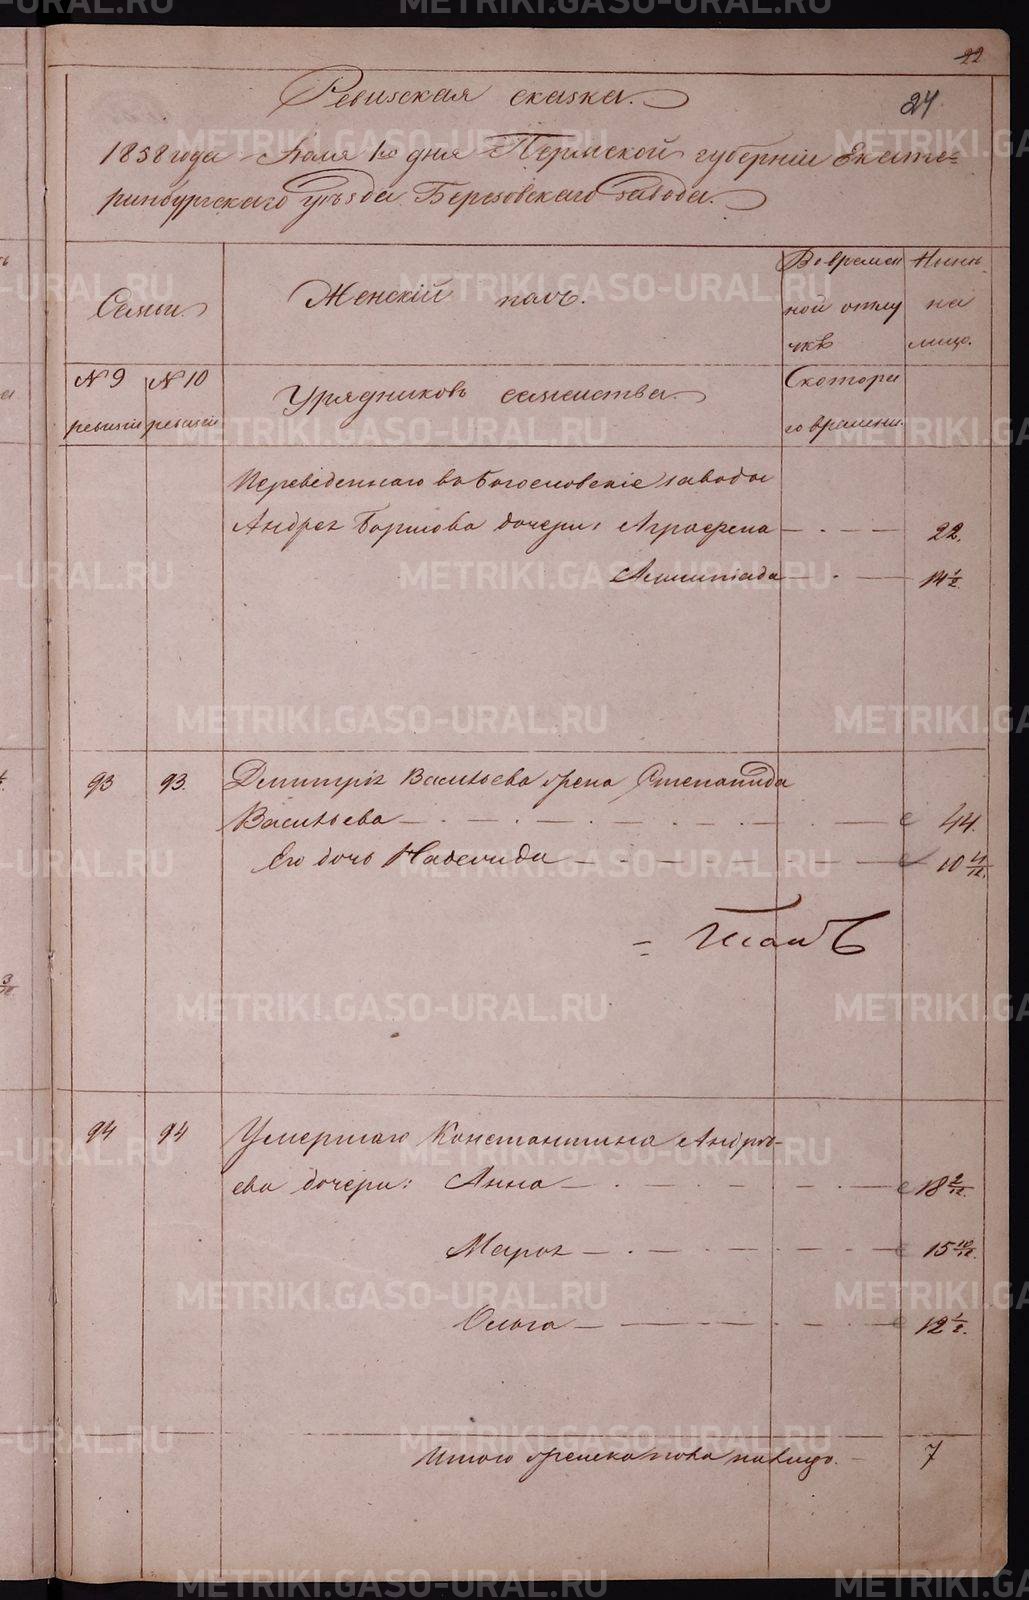 22
24
Ревизская сказка.
1858 года Июля 1го дня Пермской губернiи Екате=
ринбургскаго уѣзда Березовскаго завода.
Семьи.
Женскiй полъ.
Во времен
ной отлу
чкѣ
Нынѣ
на
лицо.
№ 9
ревизiи
№ 10
ревизiи
Урядниковъ семейства.
Съ котора
го времени.
Переведеннаго въ Богословскiе заводы
Андрея дочери: Аграфена 22.
14 1/2
93 93. Димитрiя Васильева жена Степанида
Васильева 44.
Его дочь 10 11/12.
94 94 Умершаго Константина Андрѣ-
ева дочери: Анна 18 2/12.
Марья 15 10/12.
Ольга 12 1/2.
Итого женска пола налицо. 7
METRIKI.GASO-URAL.RU